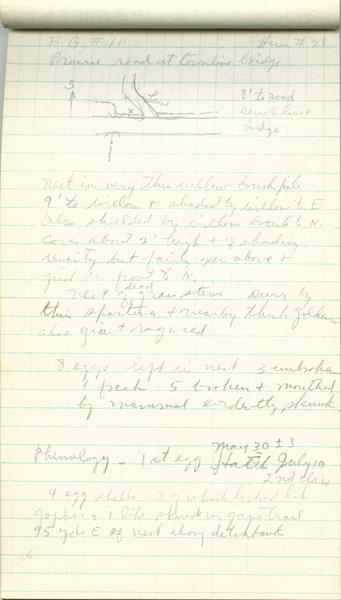 F.G. # 11 Hen # 21
Prairie road at townline bridge
S
Lane
8' to road
same level
bridge
Nest in very thin willow brush pile
9' to willow + shaded by willow to E
also shielded by willow brush to N.
Cover about 2' high + shading
density but fairly open above +
just in front to N.
Nest of dead grass stems surr by
thin spartina + nearby thick golden
also giant + ragweed
8 eggs left in nest 3 unbroken
+ fresh 5 broken + mouthed
by mammal evidently skunk.
Phenology - 1st egg May 30 ± 3
Hatch July 10
2nd class
4 egg shells 3 of which looked like
gopher + 1 like skunk on game trail
95 yds E of nest along ditch bank